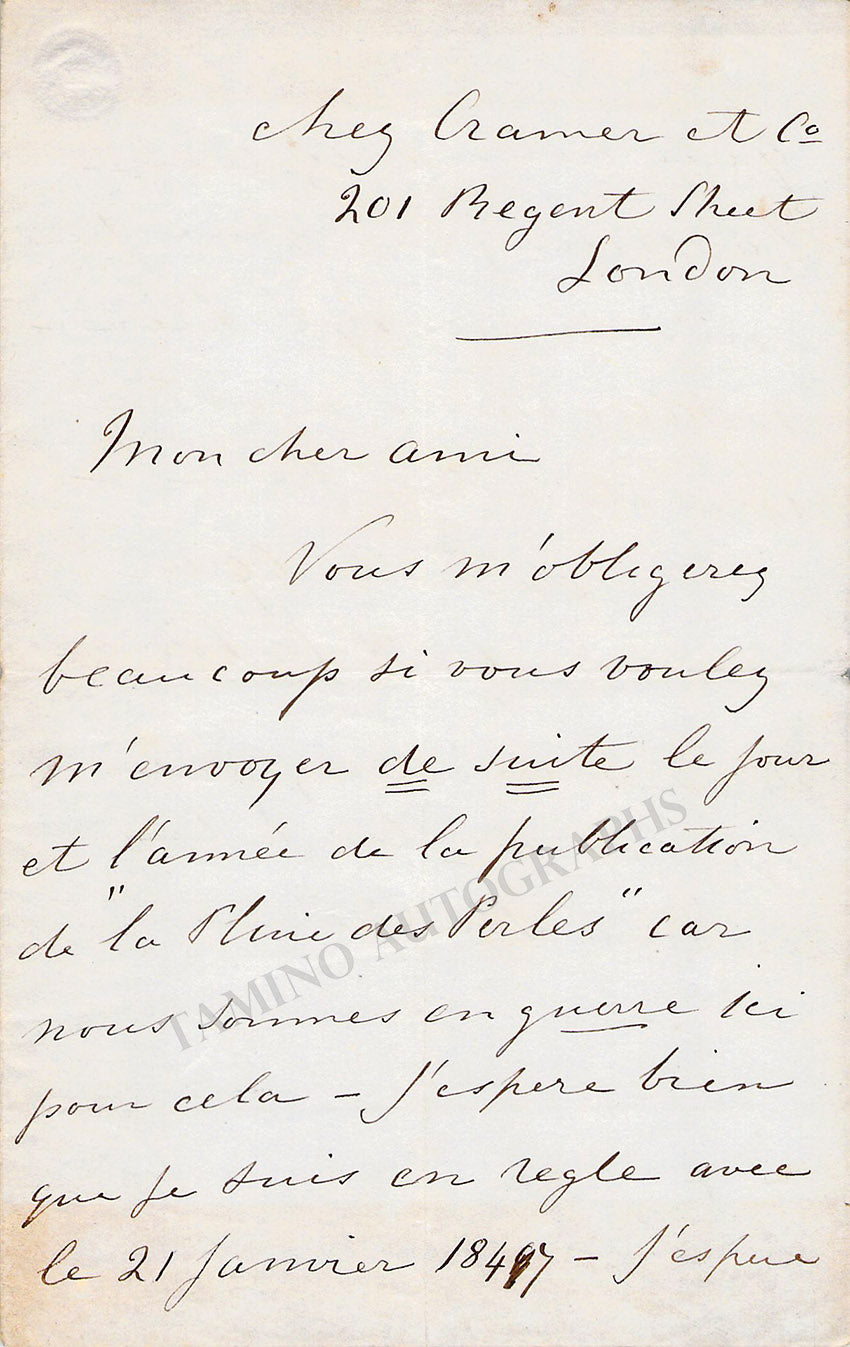 chez Cramer et Co
201 Regent Street
London
Mon cher ami
Vous m'obligerez
beaucoup si vous voulez
m'envoyer de suite le jour
et l'année de la publication
de "la Pluie des Perles" car
nous sommes en guerre ici
pour cela – J'espere bien
que je suis en regle avec
le 21 Janvier 1847 – J'espere
TAMINO AUTOGRAPHS